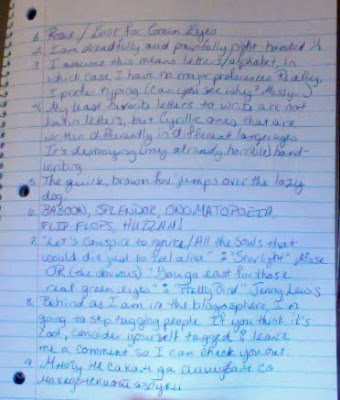 1. Rose / Lost for Green Eyes
2. I am dreadfully and painfully right-handed
3. I assume this means letters/alphabet, in
which case I have no major preferences. Really,
I prefer typing (Can you see why? Messy...)
4. My least favorite letters to write are not
Latin letters, but Cyrillic ones that are
written differently in different languages.
It's destroying (my already horrible) hand-
writing
5. The quick, brown fox jumps over the lazy
dog.
6. BABOON, SPLENDOR, ONOMATOPOEIA,
FLIP FLOPS, HUZZAH!
7. "Let's conspire to ignite/All the souls that
would die just to feel alive" : "Starlight" Muse
OR (the obvious) "You go east for those
real green eyes" : "Pretty Bird" Jenny Lewis
8. Behind as I am in the blogosphere, I'm
going to skip tagging people. If you think it's
cool, consider yourself tagged & leave
me a comment so I can check you out.
9. Многу не сакам да пишувам со
македонскиот азбуки